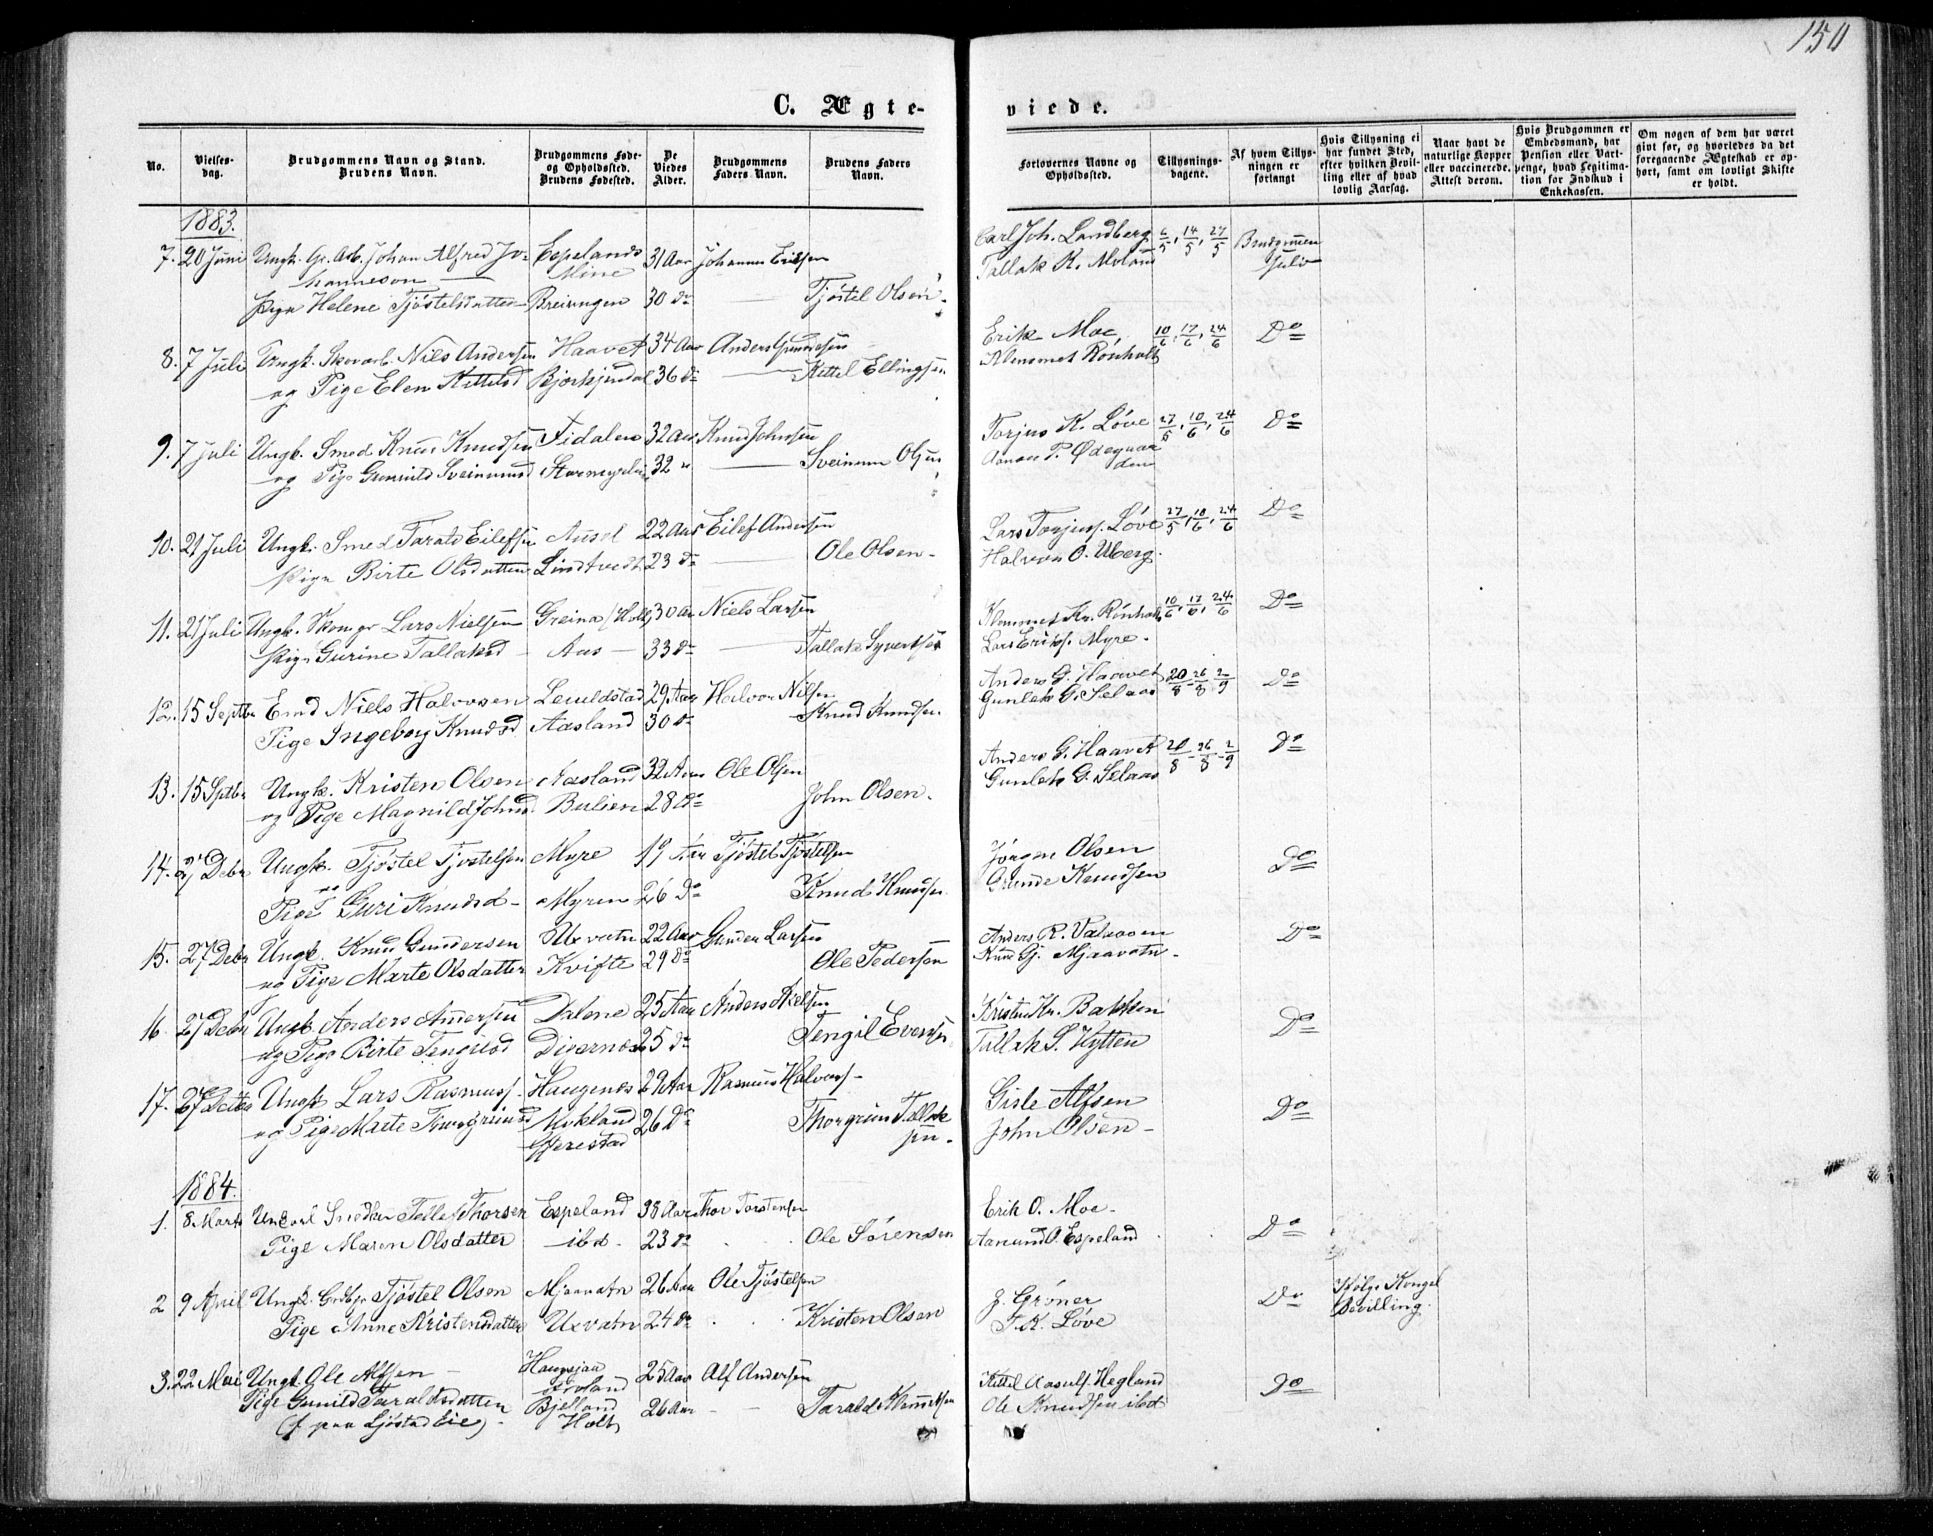 150
C. Ægte-
viede.
No.
Vielses-
dag.
Brudgommens Navn og Stand.
Brudens Navn.
Brudgommens Føde-
og Opholdssted.
Brudens Fødested.
De
Viedes
Alder.
Brudgommens
Faders Navn.
Brudens Faders
Navn.
Forlovernes Navne og
Opholdssted.
Tillysnings-
dagene.
Af hvem Tillys-
ningen er
forlangt
Hvis Tillysning ei
har fundet Sted,
efter hvilken Bevil-
ling eller af hvad
lovlig Aarsag.
Naar havt de
naturlige Kopper
eller vaccinerede.
Attest derom.
Hvis Brudgommen er
Embedsmand, har
Pension eller Vart-
penge, hvad Legitima-
tion for Indskud i
Enkekassen.
Om nogen af dem har været
givt før, og hvorledes da det
foregaaende Ægteskab er op-
hørt, samt om lovligt Skifte
er holdt.
1883.
7. 20 Juni Ungk. Gr. Arb. Johan Alfred Jo- Espelands 31 Aar Johannes Carl Joh. Landberg 6/5, 14/5, 27/5 Brudgommen
hanneson Mine Tallak K.
Pige Helene Tjöstelsdatter Breivngen 30 do Tjöstel Olsen
8. 7 Juli Ungk. Skovarb. Nils Andersen Haavet 34 Aar Anders Erik Moe, 10/6, 17/6, 24/6 Do
og Pige Elen Kettelsd 36 do Kettel Ellingsen Klemmet Rönholt
9. 7 Juli Ungk. Smed Knud Knudsen Fidalen 32 Aar Knud Johnsen Torjus K. Löve 27/5, 10/6, 24/6 Do
og Pige Gunnild 32 " Sveinum Olsen P. Ødegaar
den
10. 21 Juli Ungk. Smed Tarald Eilefsen Ausel 22 Aar Eilef Andersen Lars Torjuss. Löve 27/5, 10/6, 24/6 Do
Pige Birte Olsdatter Lindtvedt 23 do Ole Olsen Halvor O. Uberg.
11. 21 Juli Ungk. Lars Nielsen Greina 30 Aar Niels Larsen Klemmet Kr. Rönholt 10/6, 17/6, 24/6 Do
Pige Gurine Tallaksd Aas 33 do Tallak Syvertsen Lars Eriks. Myre.
12. 15 Septbr Niels Halvorsen 29 Aar Halvor Nilsen Anders G. Haavet 20/8 - 26/8 - 2/9 Do
Pige Ingeborg Knudsd Aasland 30 do Knud Knudsen Gunlek G. Selaas
13. 15 Septbr Ungk. Kristen Olsen Aasland 32 Aar Ole Olsen Anders G. Haavet 20/8 - 26/8 - 2/9 Do
og Pige Magnild Johnsd Bulien 28 do John Olsen. Gunlek G. Selaas
14. 27 Debr Ungk. Tjöstel Tjöstelsen Myre 19 Aar Tjöstel Tjöstelsen Jörgen Olsen Do
og
Pige Guri Knudsd Myren 26 do Knud Knudsen Grunde Knudsen
15. 27 Debr Ungk. Knud Gundersen Uxvatn 22 Aar Gunder Larsen Anders R. Valaasen Do
og Pige Marte Olsdatter Kvifte 29 do Ole Pedersen Knud Gj. Mjaavatn
16. 27 Debr Ungk. Anders Andersen Dalene 25 Aar Anders Nielsen Kristen Kn. Bakken Do
og Pige Birte Tengelsd Digernæs 25 do Tengil Evensen Tallak S. Hytten
17. 27 Debr Ungk Lars Rasmuss. Haugenes 29 Aar Rasmus Halvors. Gisle Alfsen Do
og Pige Marte Mökland 26 do Thorgrim Tallak John Olsen
Gjerestad sen.
1884.
1. 8. Marts Ungkarl Snedker Tellef Thorsen Espeland 38 Aar Thor Torstensen Erik O. Moe. Do
Pige Maren Olsdatter ibd. 23 do Ole Sörensen Aanund O. Espeland
2 9 April Ungk. Grdbr Tjöstel Olsen Mjaavatn 26 Aar Ole Tjöstelsen J. Gröner Do Ifölge Kongel
Bevilling.
Pige Anne Kristensdatter Uxvatn 24 do Kristen Olsen T. K. Löve
3. 22 Mai Ungk. Ole Alfsen 25 Aar Alf Andersen Kittel Aasulfs. Hegland Do
Pige Gunild Taraldsdatter Bjelland 26 Aar Tarald Ole Knudsen ibd
(f. paa Ljöstad Eie) Holt